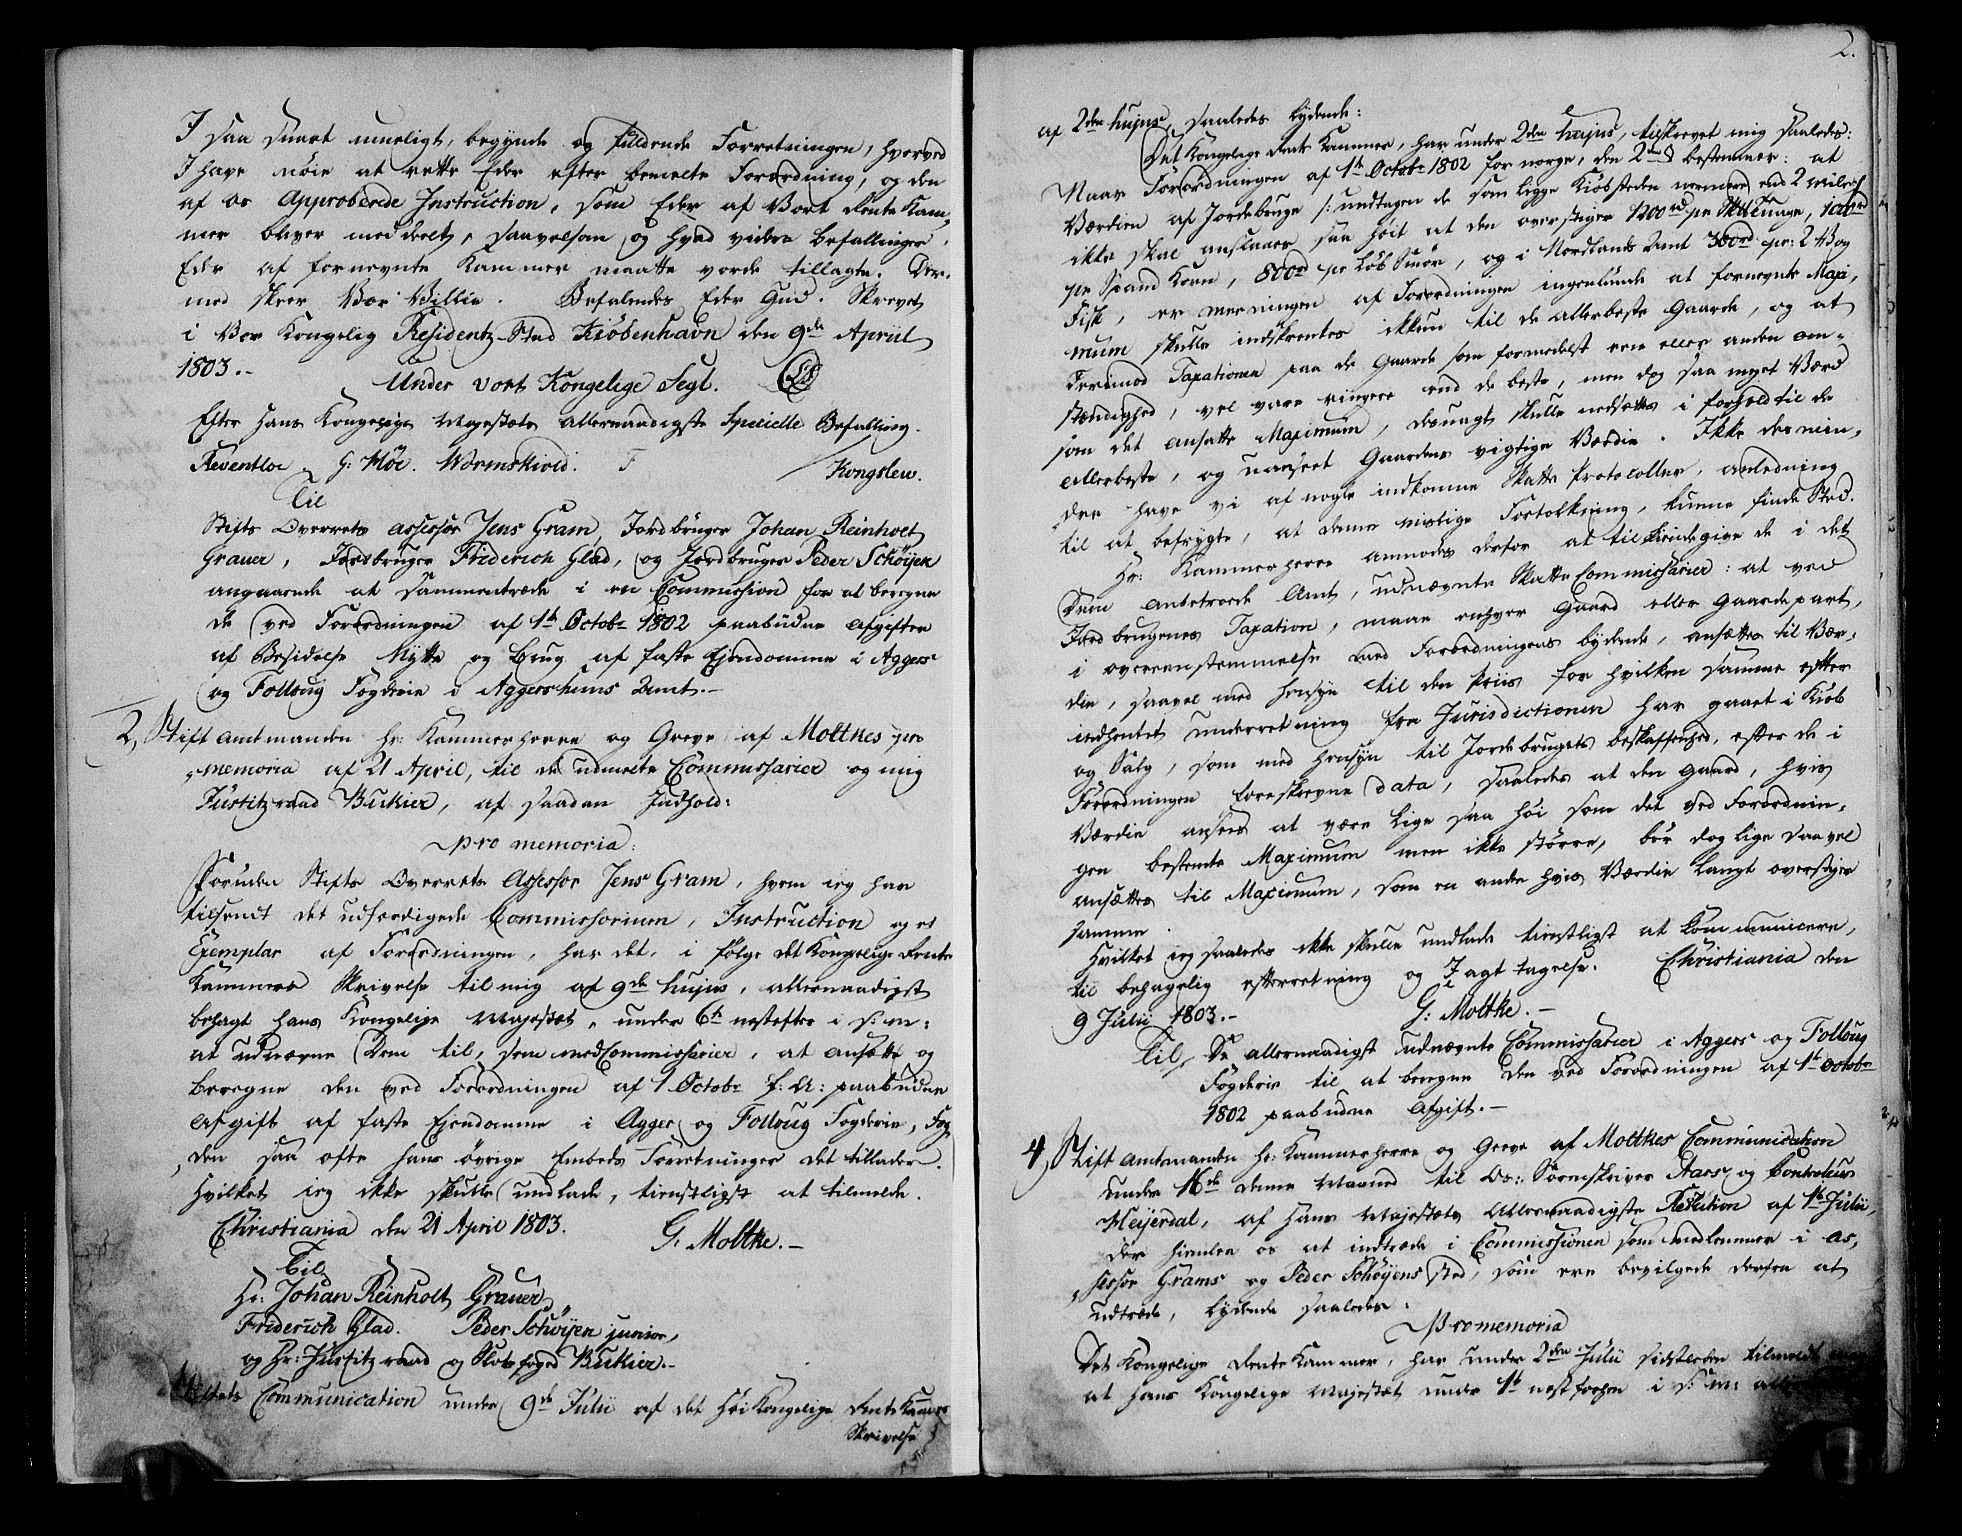 I saa snart mueligt, begynde og fuldende Forretningen, hvorved
I have nöie at rette Eder efter bemelte Forordning, og den
af os Approberede Instruction, som Eder af Vort Rente Kam-
mer bliver meddeelt, saavelsom og hvad videre befallinger,
Eder af fornevnte Kammer maatte vorde tillagte. Der-
med skeer Vor Villie. Befalendes Eder Gud. Skrevet
i Vor Kongelig Residentz-Stad Kiöbenhavn den 9de Apriil
1803.-
Under vort Kongelige Segl. LS
Efter Hans Kongelige Majestæts allernaadigste Specielle Befalling.
Reventlou G: Möe. Wormskiold. / Kongslew.
Til
Stifts Overrets Assessor Jens Gram, Jordbruger Johan Reinholt
Grauer, Jordbruger Friderich Glad, og Jordbruger Peder Schöijen
angaaende at sammentræde i en Commission for at beregne
de ved Forordningen af 1te Octobr 1802 paabudne Afgifter
af Besidelse Nytte og brug af faste Ejendomme i Aggers
og Folloug Fogderie i Aggershuus Amt.-
2, Stiftamtmanden Hr: Kammerherre og Greve af Moltkes pro
memoria af 21 April, til de udmelte Commissarier og mig
Justitzraad Bukier, af saadan Indhold:
Pro memoria:
Foruden Stifts Overrets Assessor Jens Gram, hvem ieg har
tilsendt det udfærdigede Commissorium, Instruction og et
Exemplar af Forordningen, har det, i fölge det Kongelige Rente
Kammers Skrivelse til mig af 9de hujus, allernaadigst
behagt hans Kongelige Majestæt, under 6te nestefter i s: m:
at udnævne Dem til, som medCommissarier, at ansætte og
beregne den ved Forordningen af 1 Octobr f: A: paabudne
Afgift af faste Ejendomme i Agger og Folloug Fogderie,
den saa ofte hans övrige Embeds Forretninger det tillader.
Hvilket ieg ikke skulle undlade, tienstligst at tilmelde.
Christiania den 21 April 1803. G. Moltke.-
Til
Hr: Johan Reinholt Grauer
Friderich Glad. Peder Schöijen junior,
og Hr: Justitzraad og Slotsfoged Bukier.-
Communication under 9de Julii af det Höi Kongelige Rente Kamers
Skrivelse
2.
af 2den hujus, saaledes lydende:
Det Kongelige Rente Kammer, har under 2den hujus, tilskrevet mig saaledes:
Naar Forordningen af 1te Octobr 1802 for norge, den 2den § bestemmer: at
Værdien af Jordebruge /: undtagen de som ligge Kiöbsteden nærmere end 2 Miile :/
ikke skal ansættes saa höit at den overstiger 1200rd pr Skltunge, 1000rd
pr Spand Korn, 800rd pr Löb Smör, og i Nordlands Amt 300rd pr: 2 Vog
Fisk, er meeningen af Forordningen ingenlunde at fornevnte Maxi,
mum skulle indskrenkes ikkun til de allerbeste Gaarde, og at
Derimod Taxationen paa de Gaarde som formedelst een eller anden om-
stændighed, vel vare ringere end de beste, men dog saa meget Værd
som det ansatte Maximum, desuagt skulle nedsættes i forhold til de
allerbeste, og uanseet Gaardens rigtige Værdie. Ikke desmin,
der have vi af nogle indkomne Skatte Protocoller, anledning
til at befrygte, at denne urigtige Fortolkning, kunne finde Sted.
Hr: Kammerherre anmodes derfor at tilkiendegive de i det
Dem anbetroede Amt, udnævnte Skatte Commissarier: at ved
Jordbrugenes Taxation, maae enhver Gaard eller Gaardepart,
i overeenstemmelse med Forordningens bydende, ansættes til Vær-
die, saavel med hensyn til den Priis for hvilken samme efter
indhentet underretning fra Jurisdictionen har gaaet i Kiöb
og Salg, som med hensyn til Jordebrugets beskaffenhed, efter de i
Forordningen foreskrevne data, saaledes at den Gaard, hvis
Værdie ansees at være lige saa höi som det ved Forordnin-
gen bestemte Maximum men ikke större, bör dog lige saavel
ansættes til Maximum, som en anden hvis Værdie langt overstiger
samme.
Hvilket ieg saaledes ikke skulle undlade tienstligst at Communicere,
til behagelig efterretning og Iagttagelse. Christiania den
9 Julii 1803.- G: Moltke.-
Til De allernaadigst udnævnte Commissarier i Aggers og Folloug
Fogderie til at beregne den ved Forordningen af 1te Octobr
1802 paabudne Afgift.-
4, Stiftamtmanden Hr: Kammerherre og Greve af Moltkes Communication
under 16de denne Maaned til Os: Sorenskriver Aars og Controlleur
Meijerdal, af Hans Majestæts Allernaadigste Resolution af 1te Julii,
der hiemler os at indtræde i Commissionen som medlemmer i As,
sessor Grams og Peder Schöyens sted, som ere bevilgede derfra at
udtræde, lydende saaledes:
Pro memoria
Det Kongelige Rente Kammer, har under 2den Julii sidstleden tilmeldt
at hans Kongelige Majestæt under 1te nestforhen i s: m: